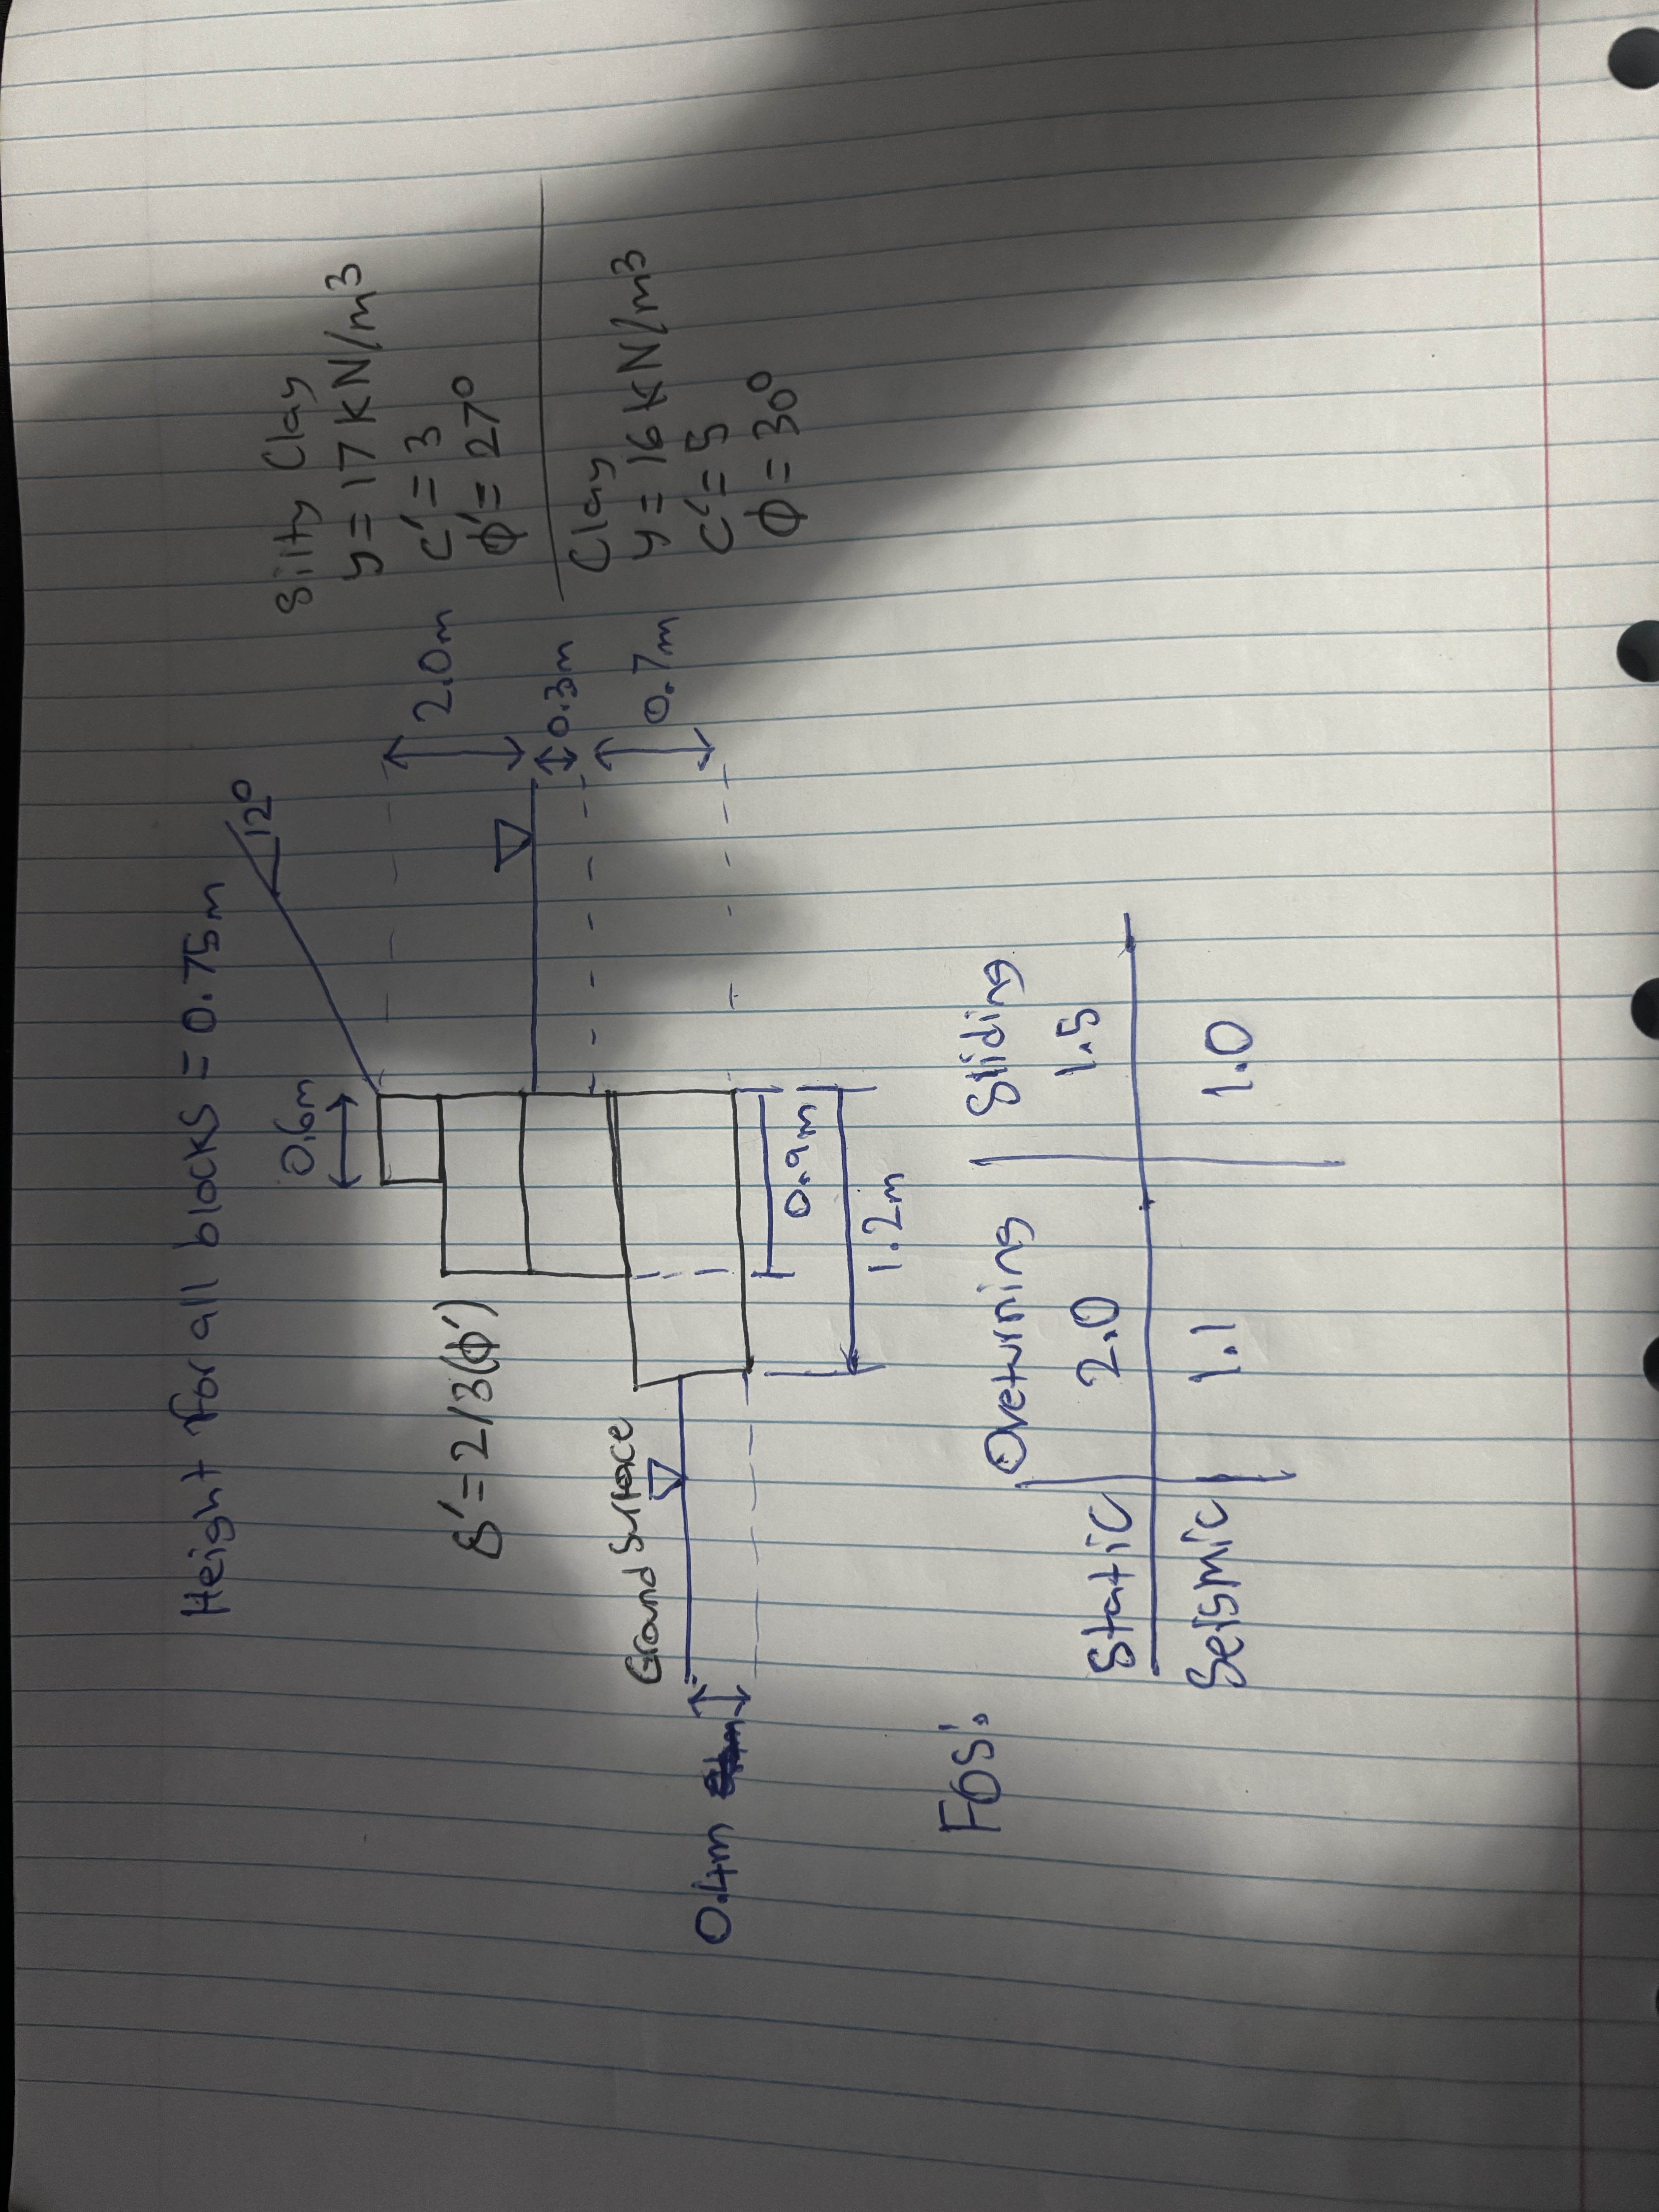 Height for all blocks = 0.75m
0.6m
12°
2.0m
0.3m
0.7m
Silty Clay
y = 17 kN/m3
c' = 3
ϕ' = 27°
Clay
y = 16 kN/m3
c' = 5
ϕ = 30°
δ' = 2/3(ϕ')
Ground Surface
0.4m
0.9m
1.2m
FOS:
Overturning | Sliding
Static | 2.0 | 1.5
Seismic | 1.1 | 1.0